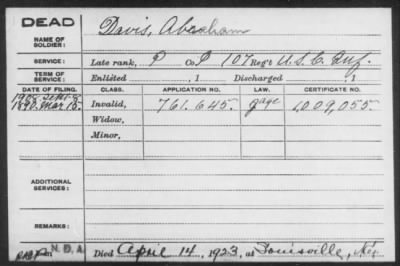 DEAD
NAME OF SOLDIER: Davis, Abraham
SERVICE: Late rank, P Co. P 107 Reg't U.S.C. Inf.
TERM OF SERVICE: Enlisted , 1 Discharged , 1
DATE OF FILING. CLASS. APPLICATION NO. LAW. CERTIFICATE NO.
1890. Mar. 18. Invalid, 761.645. 1,009,055
Widow,
Minor,
ADDITIONAL SERVICES:
REMARKS:
N.D.A. Died April 14, 1923, at Louisville, Ky